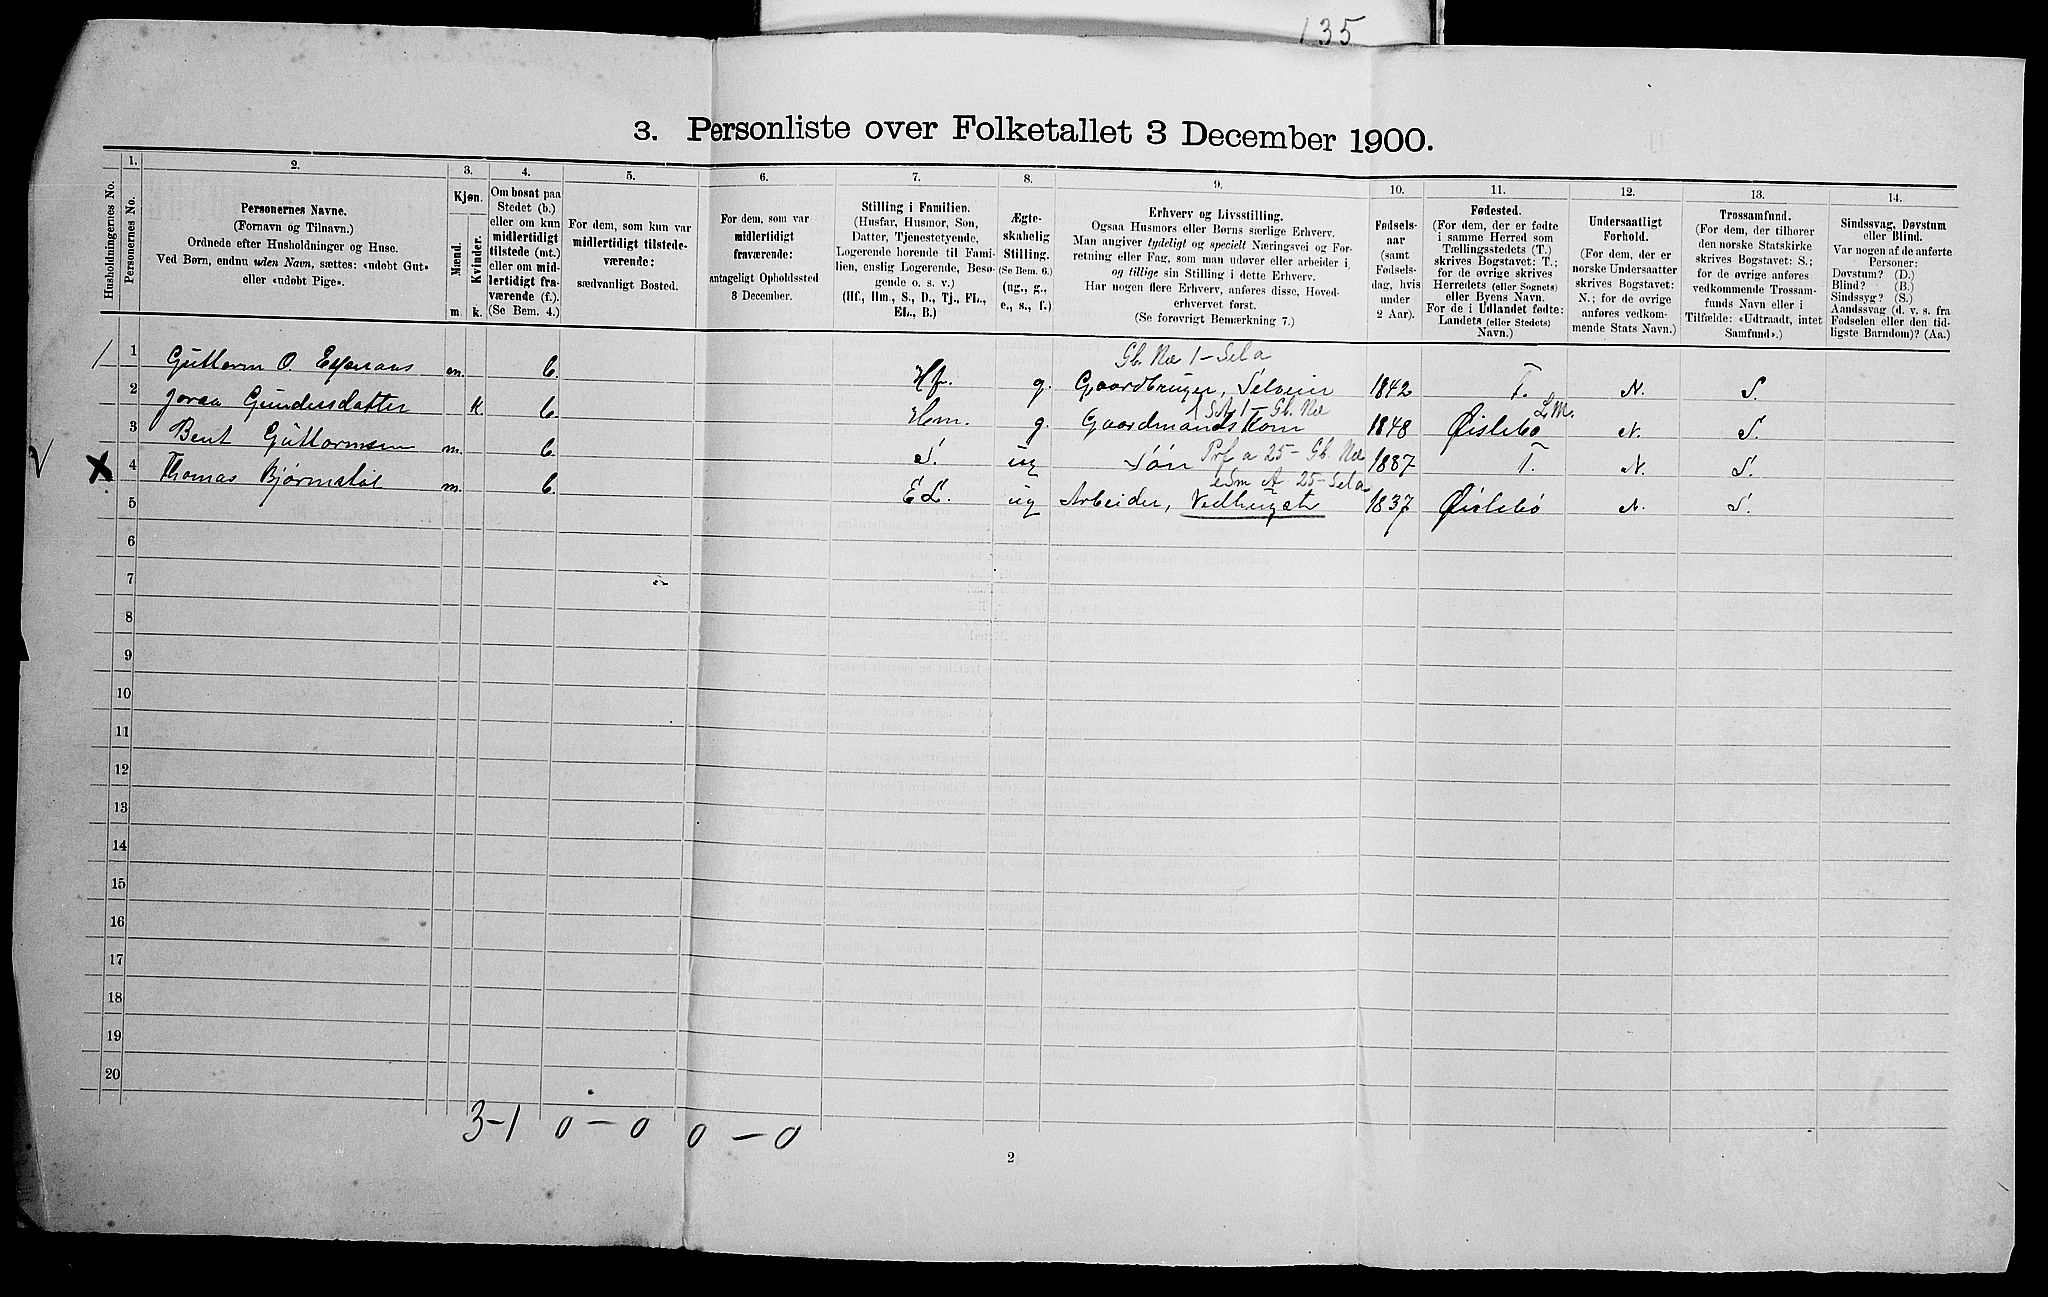 135
3. Personliste over Folketallet 3 December 1900.
Husholdningernes No.
1.
Personernes No.
2.
Personernes Navne.
(Fornavn og Tilnavn.)
Ordnede efter Husholdninger og Huse.
Ved Børn, endnu uden Navn, sættes: «udøbt Gut»
eller «udøbt Pige».
3.
Kjøn.
Mænd.
Kvinder.
m. k.
4.
Om bosat paa
Stedet (b.)
eller om kun
midlertidigt
tilstede (mt.)
eller om mid-
lertidigt fra-
værende (f.).
(Se Bem. 4.)
5.
For dem, som kun var
midlertidigt tilstede-
værende:
sædvanligt Bosted.
6.
For dem, som var
midlertidigt
fraværende:
antageligt Opholdssted
3 December.
7.
Stilling i Familien.
(Husfar, Husmor, Søn,
Datter, Tjenestetyende,
Logerende hørende til Fami-
lien, enslig Logerende, Besø-
gende o. s. v.)
(Hf., Hm., S., D., Tj., FL.,
EL., B.)
8.
Ægte-
skabelig
Stilling.
(Se Bem. 6.)
(ug., g.,
e., s., f.)
9.
Erhverv og Livsstilling.
Ogsaa Husmors eller Børns særlige Erhverv.
Man angiver tydeligt og specielt Næringsvei og For-
retning eller Fag, som man udøver eller arbeider i,
og tillige sin Stilling i dette Erhverv.
Har nogen flere Erhverv, anføres disse, Hoved-
erhvervet først.
(Se forøvrigt Bemærkning 7.)
10.
Fødsels-
aar
(samt
Fødsels-
dag, hvis
under
2 Aar).
11.
Fødested.
(For dem, der er fødte
i samme Herred som
Tællingsstedets (T.)
skrives Bogstavet: T.;
for de øvrige skrives
Herredets (eller Sognets)
eller Byens Navn.
For de i Udlandet fødte:
Landets (eller Stedets)
Navn.)
12.
Undersaatligt
Forhold.
(For dem, der er
norske Undersaatter
skrives Bogstavet:
N.; for de øvrige
anføres vedkom-
mende Stats Navn.)
13.
Trossamfund.
(For dem, der tilhører
den norske Statskirke
skrives Bogstavet: S.;
for de øvrige anføres
vedkommende Trossam-
funds Navn eller i
Tilfælde: «Udtraadt, intet
Samfund».)
14.
Sindssvag, Døvstum
eller Blind.
Var nogen af de anførte
Personer:
Døvstum? (D.)
Blind? (B.)
Sindssyg? (S.)
Aandssvag (d. v. s. fra
Fødselen eller den tid-
ligste Barndom)? (Aa.)
Gb. No 1 - Sela
1 Guttorm O. m. b. Hf. g. Gaardbruger, Selveier 1842 T. N. S.
1 - Gb. No L.M.
2 Joraa Gundersdatter k b. Hm. g. Gaardmandskone 1848 Øislebø N. S.
Prf a 25 - Gb. No
3 Bent Guttormsen m. b. S. ug Søn 1887 T. N. S.
A 25 - Sela
4 Thomas Bjørmstøl m. b. EL. ug Arbeider, Vedhugst 1837 Øislebø N. S.
5
6
7
8
9
10
11
12
13
14
15
16
17
18
19
20
3-1 0-0 0-0
2